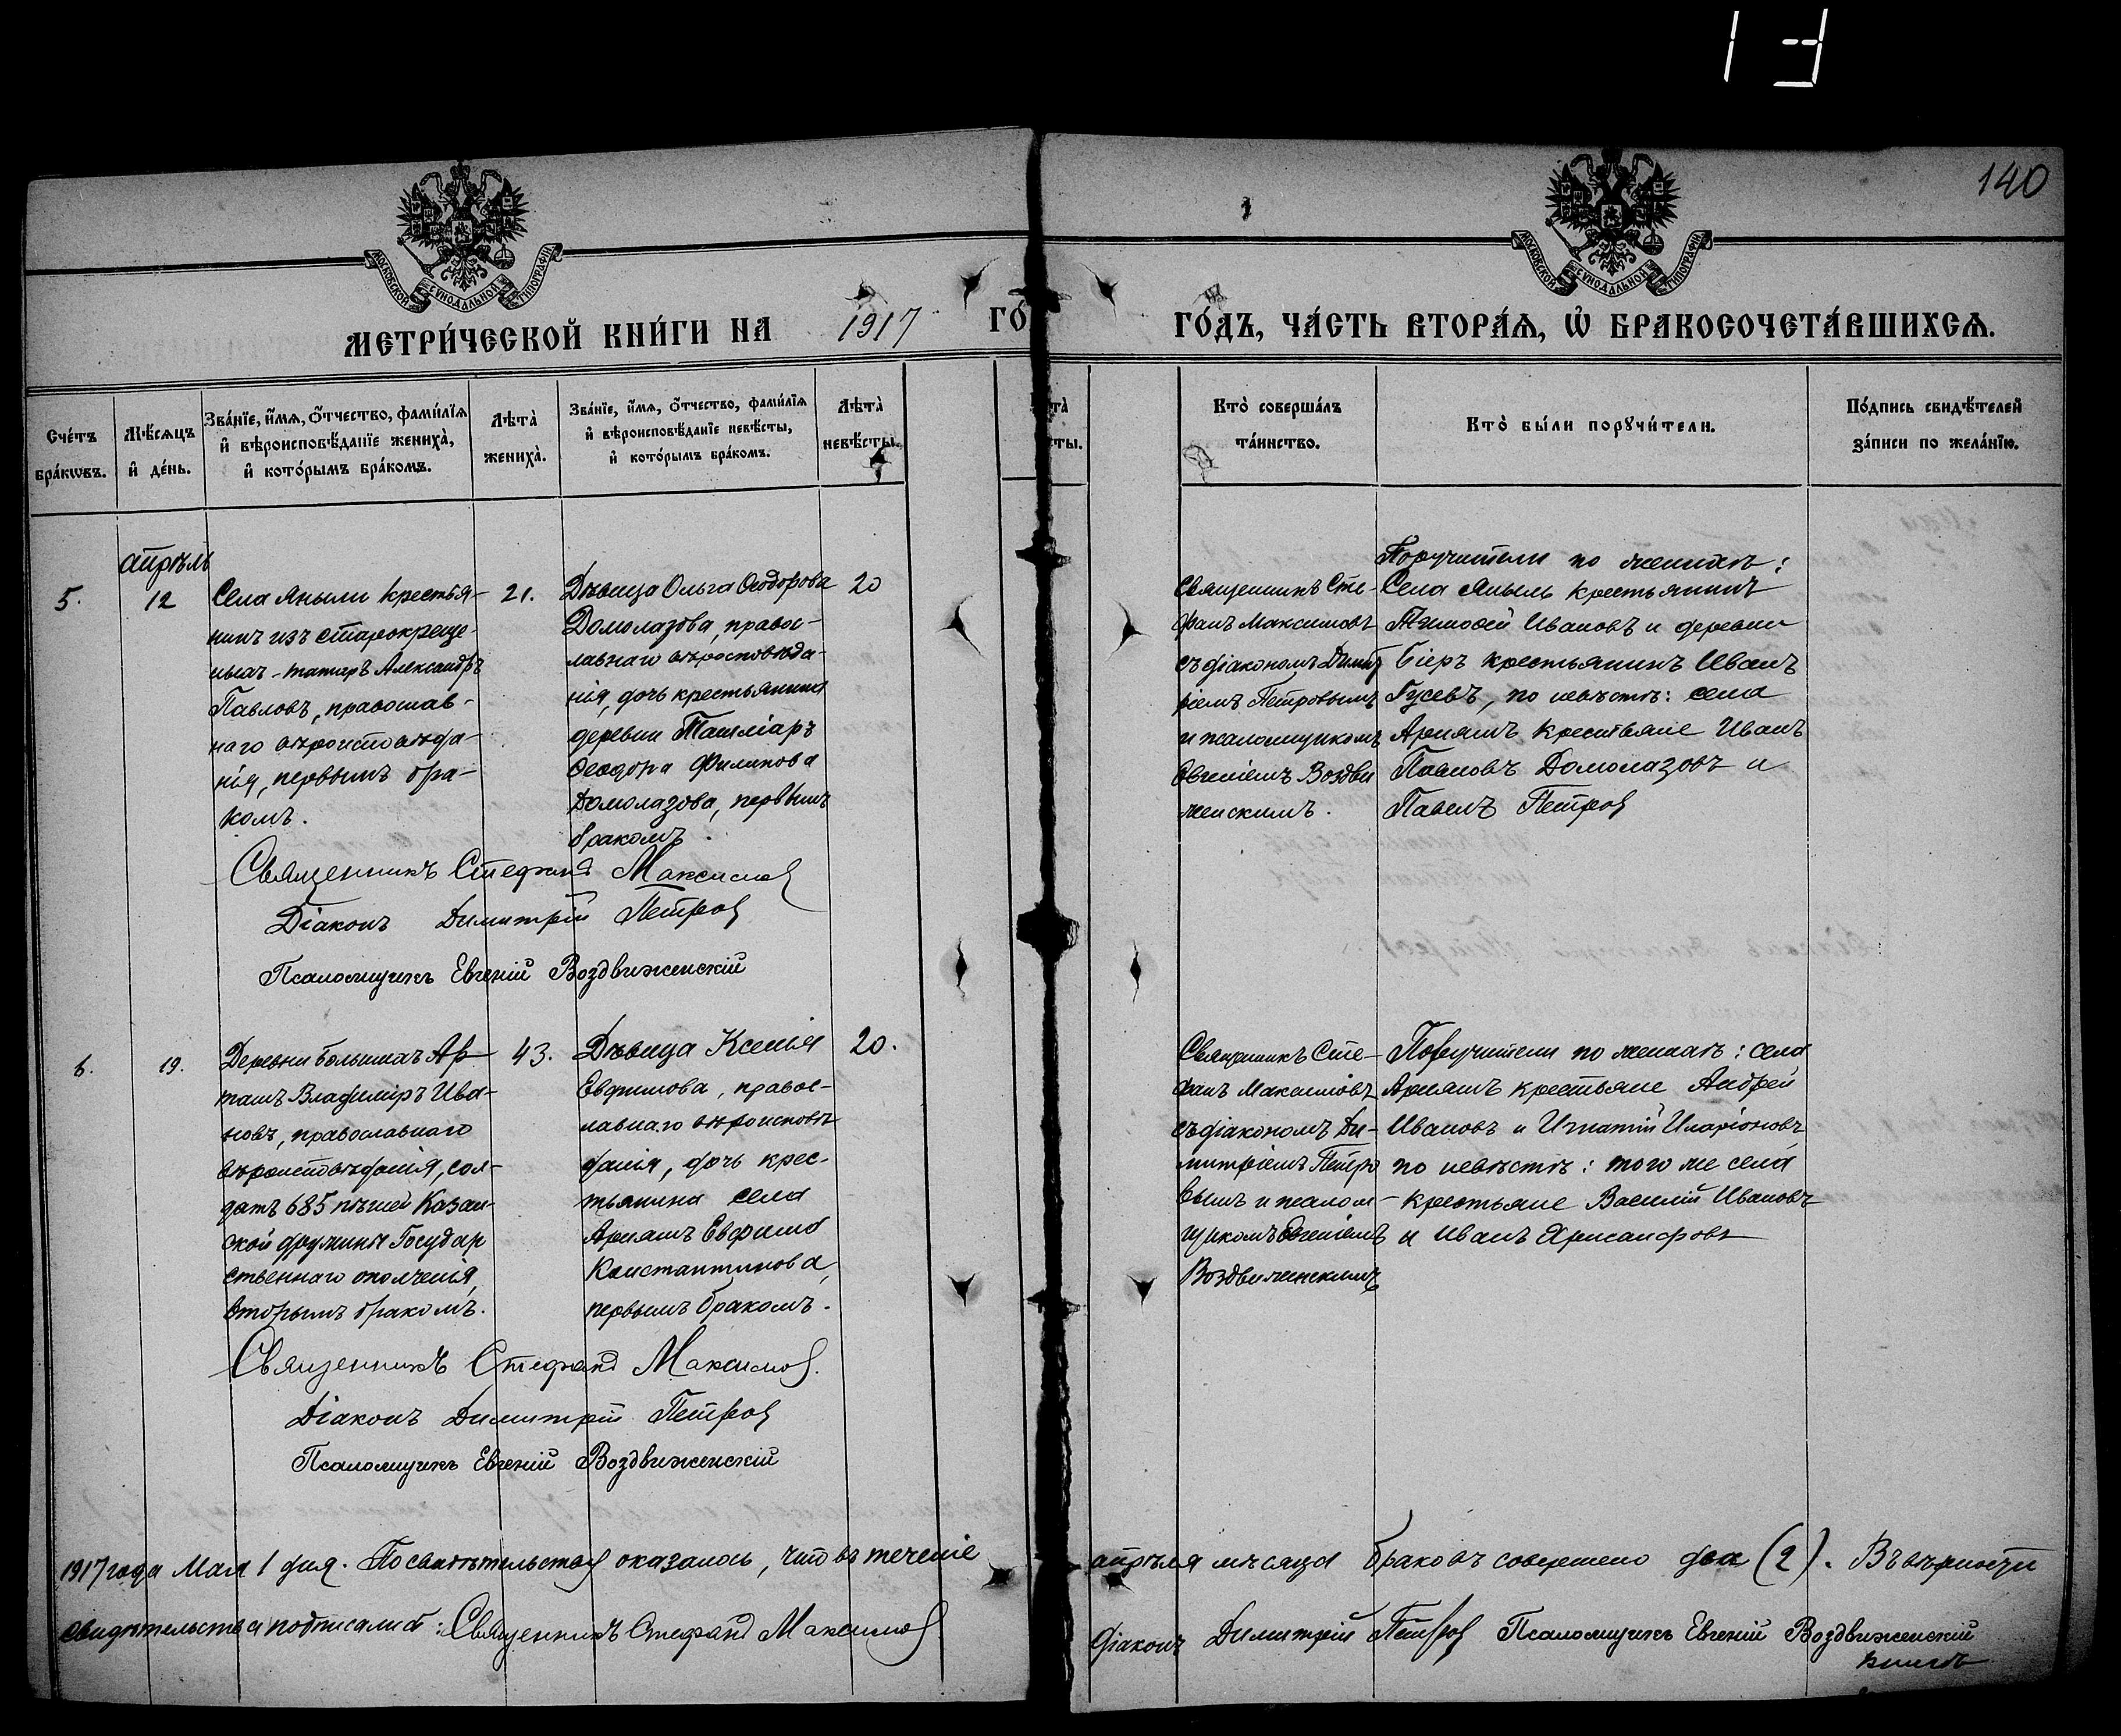 13
140
МОСКОВСКОЙ СУНОДАЛЬНОЙ ТИПОГРАФІИ
МОСКОВСКОЙ СУНОДАЛЬНОЙ ТИПОГРАФІИ
МЕТРИ́ЧЕСКОЙ КНИ́ГИ НА 1917 ГО́
ГО́ДЪ, ЧА́СТЬ ВТОРА́Ѧ, Ѽ БРАКОСОЧЕТА́ВШИХСѦ.
Сче́тъ бра́кѡвъ.
Мѣ́сѧцъ и҆ де́нь.
Зва́нїе, и҆́мѧ, ѻ҆́тчество, фами́лїѧ
и҆ вѣроисповѣ́данїе жениха̀,
и҆ кото́рымъ бра́комъ.
Лѣта̀ жениха̀.
Зва́нїе, и҆́мѧ, ѻ҆́тчество, фами́лїѧ
и҆ вѣроисповѣ́данїе невѣ́сты,
и҆ кото́рымъ бра́комъ.
Лѣта̀ невѣ́сты.
та̀
сты.
Кто̀ соверша́лъ та́инство.
Кто̀ бы́ли порꙋчи́тели.
По́дпись свидѣ́телей за́писи по жела́нїю.
апрѣль
5.
12
Села Яныли крестья-
нинъ изъ старокреще-
ныхъ-татаръ Александръ
Павловъ, православ-
наго вѣроисповѣда-
нія, первымъ бра-
комъ.
21.
Дѣвица Ольга Ѳеодорова
Домолазова, правос-
лавнаго вѣроисповѣда-
нія, дочь крестьянина
деревни
Ѳеодора Филипова
Домолазова, первымъ
бракомъ.
20
Священникъ Сте-
фанъ Максимовъ
съ діакономъ Димит
ріемъ Петровымъ
и псаломщикомъ
Евгеніемъ Воздви
женскимъ.
Поручители по женихѣ:
Села Яныль крестьянинъ
Тимофей Ивановъ и деревни
крестьянинъ Иванъ
Гусевъ, по невѣстѣ: села
Арняшъ крестьяне Иванъ
Павловъ Домолазовъ и
Павелъ Петровъ
Священникъ Стефанъ Максимовъ
Діаконъ Димитрій Петровъ
Псаломщикъ Евгеній Воздвиженскій
6.
19.
Деревни Большихъ Ар-
ташъ Владиміръ Ива-
новъ, православнаго
вѣроисповѣданія, сол-
датъ 685 пѣшей Казан-
ской дружины Государ
ственнаго ополченія,
вторымъ бракомъ.
43.
Дѣвица Ксенія
Евфимова, правос-
лавнаго вѣроисповѣ
данія, дочь крес-
тьянина села
Арняшъ Евфима
Константинова,
первымъ бракомъ.
20.
Священникъ Сте-
фанъ Максимовъ
съ діакономъ Ди-
митріемъ Петро
вымъ и псалом-
щикомъ Евгеніемъ
Воздвиженскимъ
Поручители по женихѣ: села
Арняшъ крестьяне Андрей
Ивановъ и Игнатій Иларіоновъ,
по невѣстѣ: того же села
крестьяне Василій Ивановъ
и Иванъ
Священникъ Стефанъ Максимовъ.
Діаконъ Димитрій Петровъ
Псаломщикъ Евгеній Воздвиженскій
1917 года Мая 1 дня. По свидѣтельству оказалось, что въ теченіе апрѣля мѣсяца браковъ совершено два (2). Въ вѣрности
свидѣтельства подписались: Священникъ Стефанъ Максимовъ діаконъ Димитрій Петровъ Псаломщикъ Евгеній Воздвиженскій